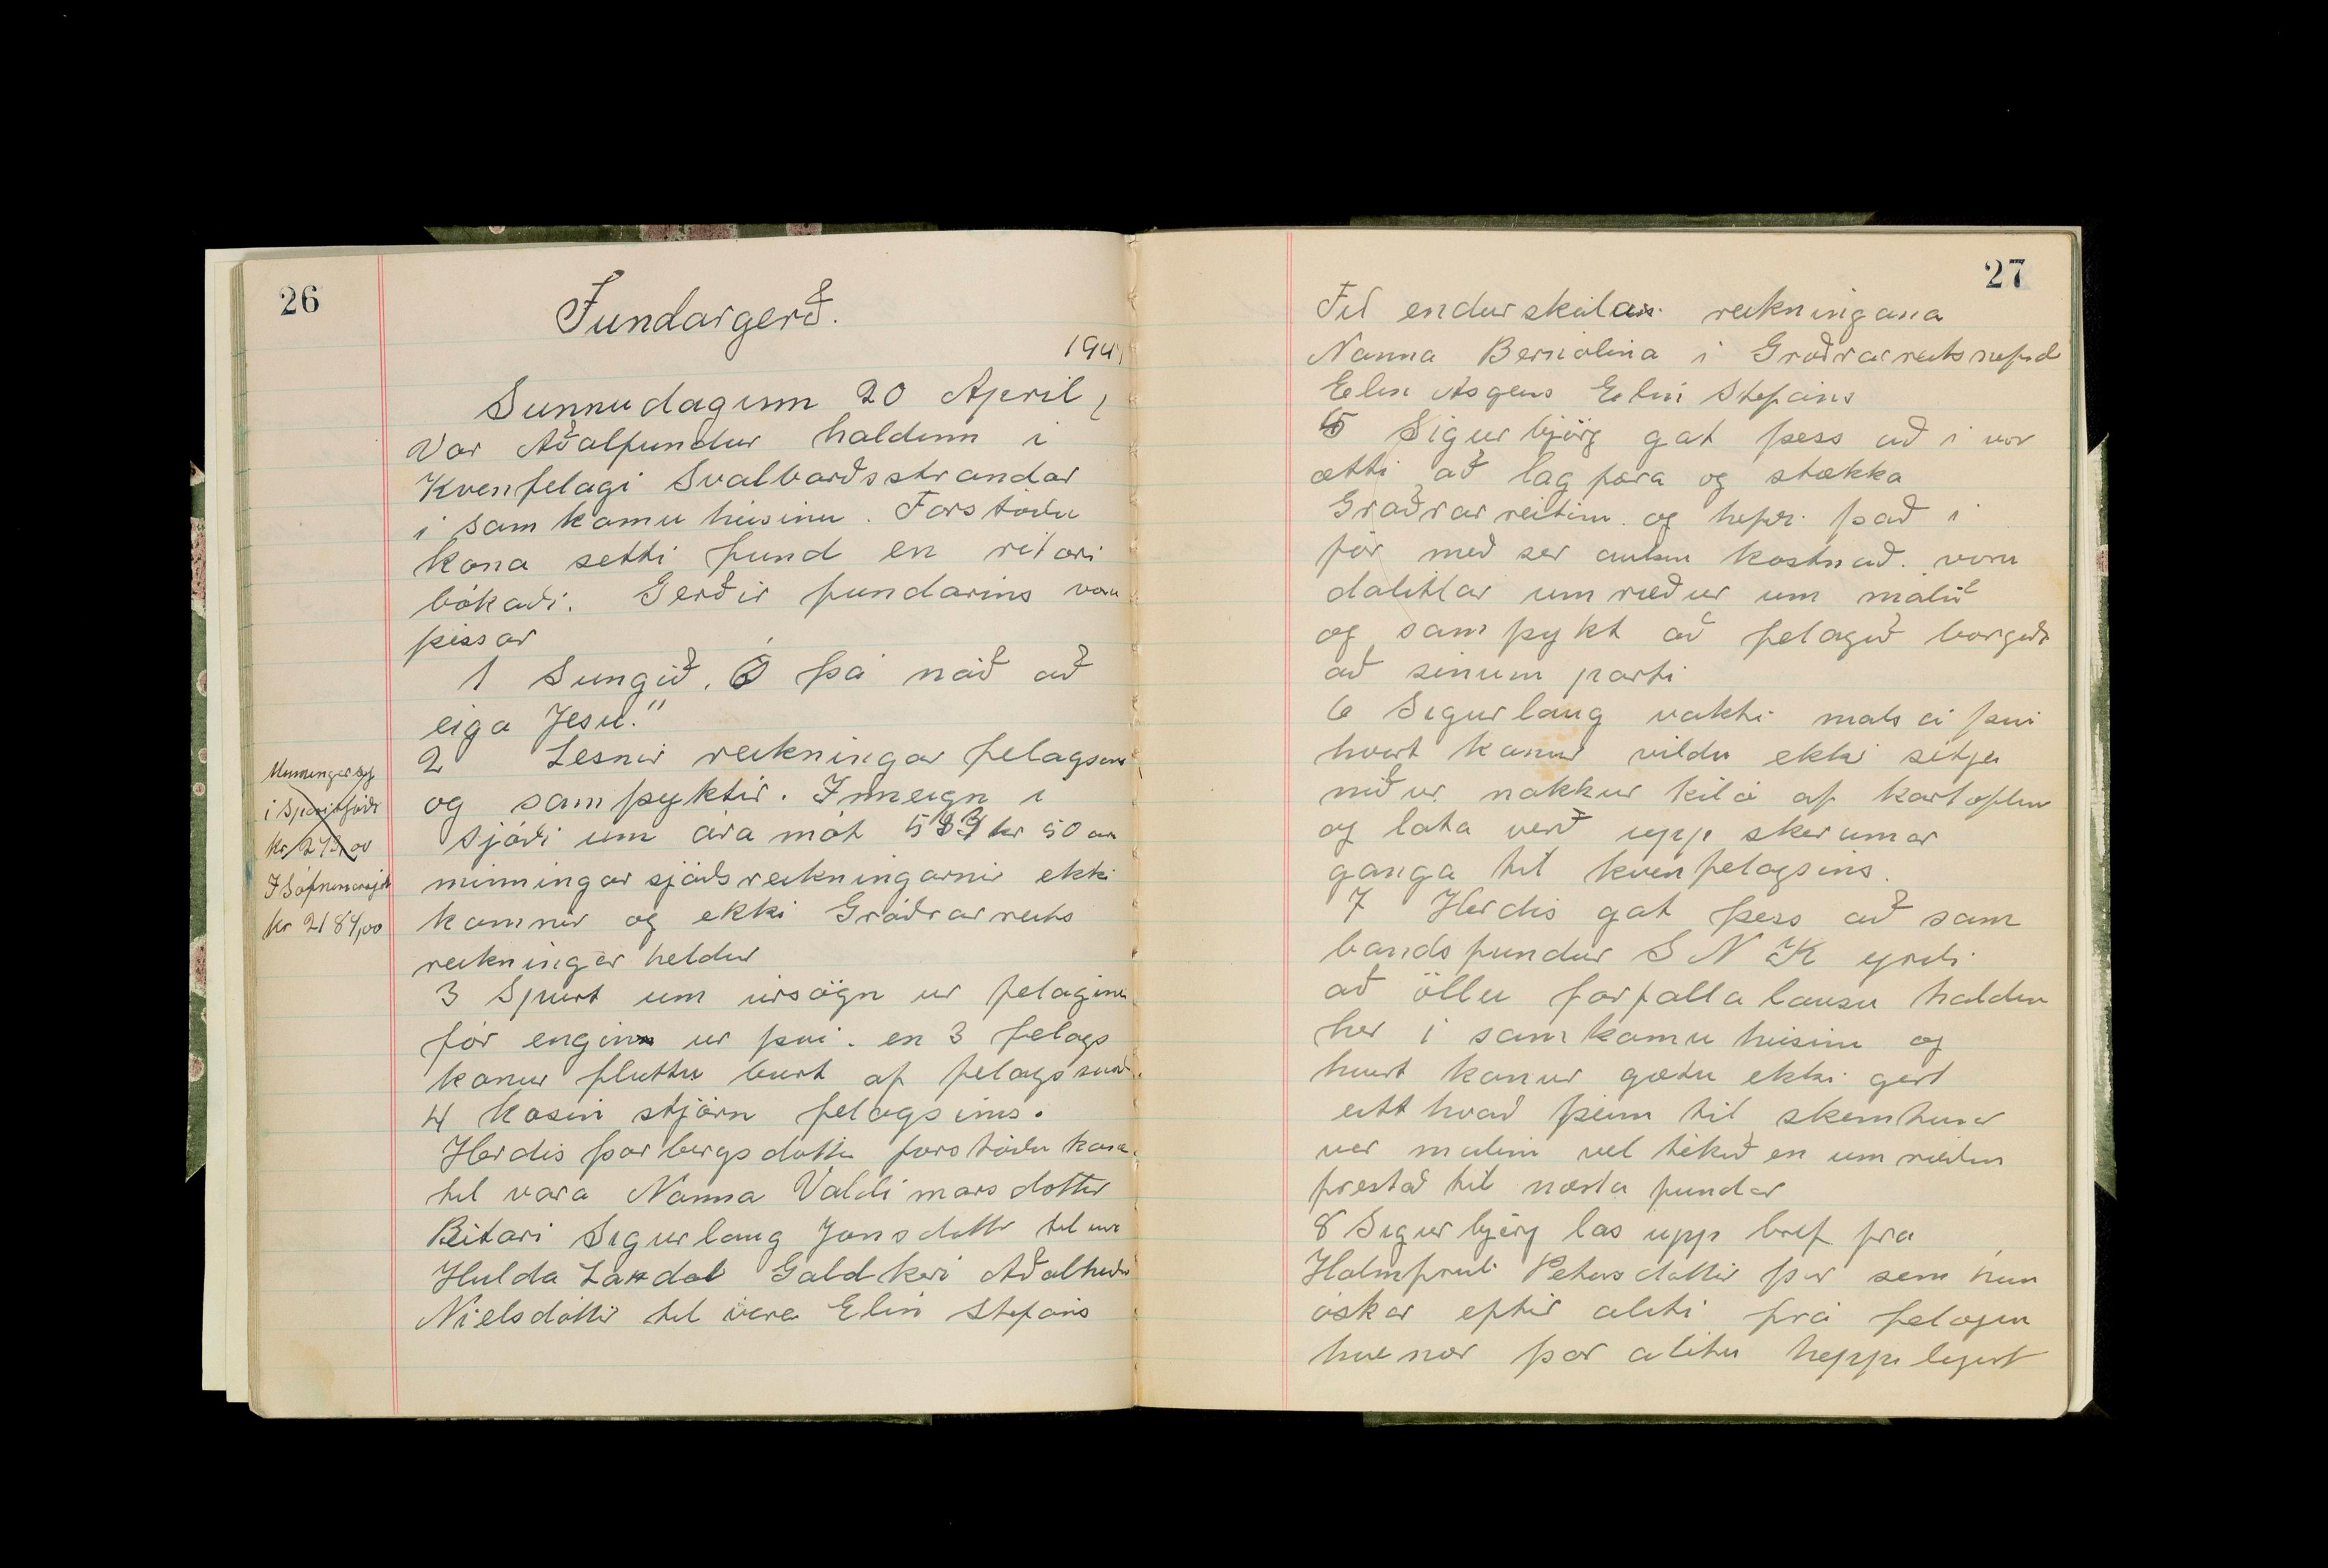 26
Fundargerð.
1941
Sunnudaginn 20 April,
Var Aðalfundur haldinn i
Kvenfelagi Svalbarðsstrandar
i samkomu húsinu. Forstöðu
kona setti fund en ritari
bókaði. Gerðir fundarins voru
þessar
1 Sungið. Ó þá náð að
eiga Jesu."
2 Lesnir reikningar felagsins
og samþyktir. Inneign i
sjóði um ára mót kr 50 au
minningar sjóðsreikningarnir ekki
komnir og ekki Gróðrarreits
reikningar heldur
3 Spurt um úrsögn ur felaginu
fór engin ur þvi. en 3 felags
konur fluttu burt af felagssvæð
4 kosin stjórn felagsins.
Herdis Þorbergsdottir forstöðu kona
til vara Nanna Valdimarsdottir
Ritari Sigurlaug Jonsdottir til vara
Hulda Laxdal Galdkeri Aðalheiður
Nielsdóttir til vara Elin Stefáns
Minningarsj
i Sparisjóði
kr 273,00
I Söfnunarsjóði
kr 2184,00
27
Til endurskoðun reikningana
Nanna Bernolina i Groðrarreitsnefnd
Elin Asgeirs Elin Stefáns
5 Sigurbjörg gat þess að i vor
ætti að lagfæra og stækka
Groðrarreitinn og hefði það i
för með ser aukin kostnað. voru
dalitlar umræður um málið
og samþykt að felagið borgaði
að sinum parti
6 Sigurlaug vakti mals á þvi
hvort konur vildu ekki setja
niður nokkur kiló af kartoflum
og lata verð uppskerunnar
ganga til kvenfelagsins.
7 Herdis gat þess að sam
bandsfundur S N K yrði
að öllu forfallalausu haldin
her i samkomu húsinu og
hvort konur gætu ekki gert
eitthvað þeim til skemtunar
var malinu vel tekið en umræðum
frestað til næsta fundar
8 Sigurbjörg las upp bref fra
Holmfriði Petursdottir þar sem hún
óskar eftir aliti frá felaginu
hvenær þær alitu heppilegast